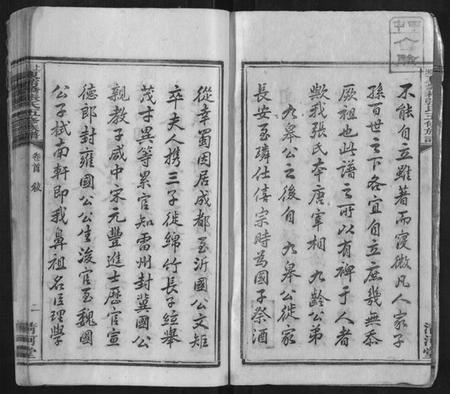 不能自立雖著而寖微凡人家子
孫百世之下各宜自立庶幾無忝
厥祖也此譜之所以有碑于人者
歟我張氏本唐宰相 九齡公弟
九皋公之後自 九皋公徙家
長安至璘仕僖宗時為國子祭酒
從幸蜀因居成都至沂國公文矩
卒夫人携三子徙綿竹長子紘舉
茂才異等累官知雷州封冀國公
親教子咸中宋元豐進士歷官宣
德郎封雍國公公生浚官至魏國
公子栻南軒即我鼻祖名臣理學
卷首 敘
二
清河堂